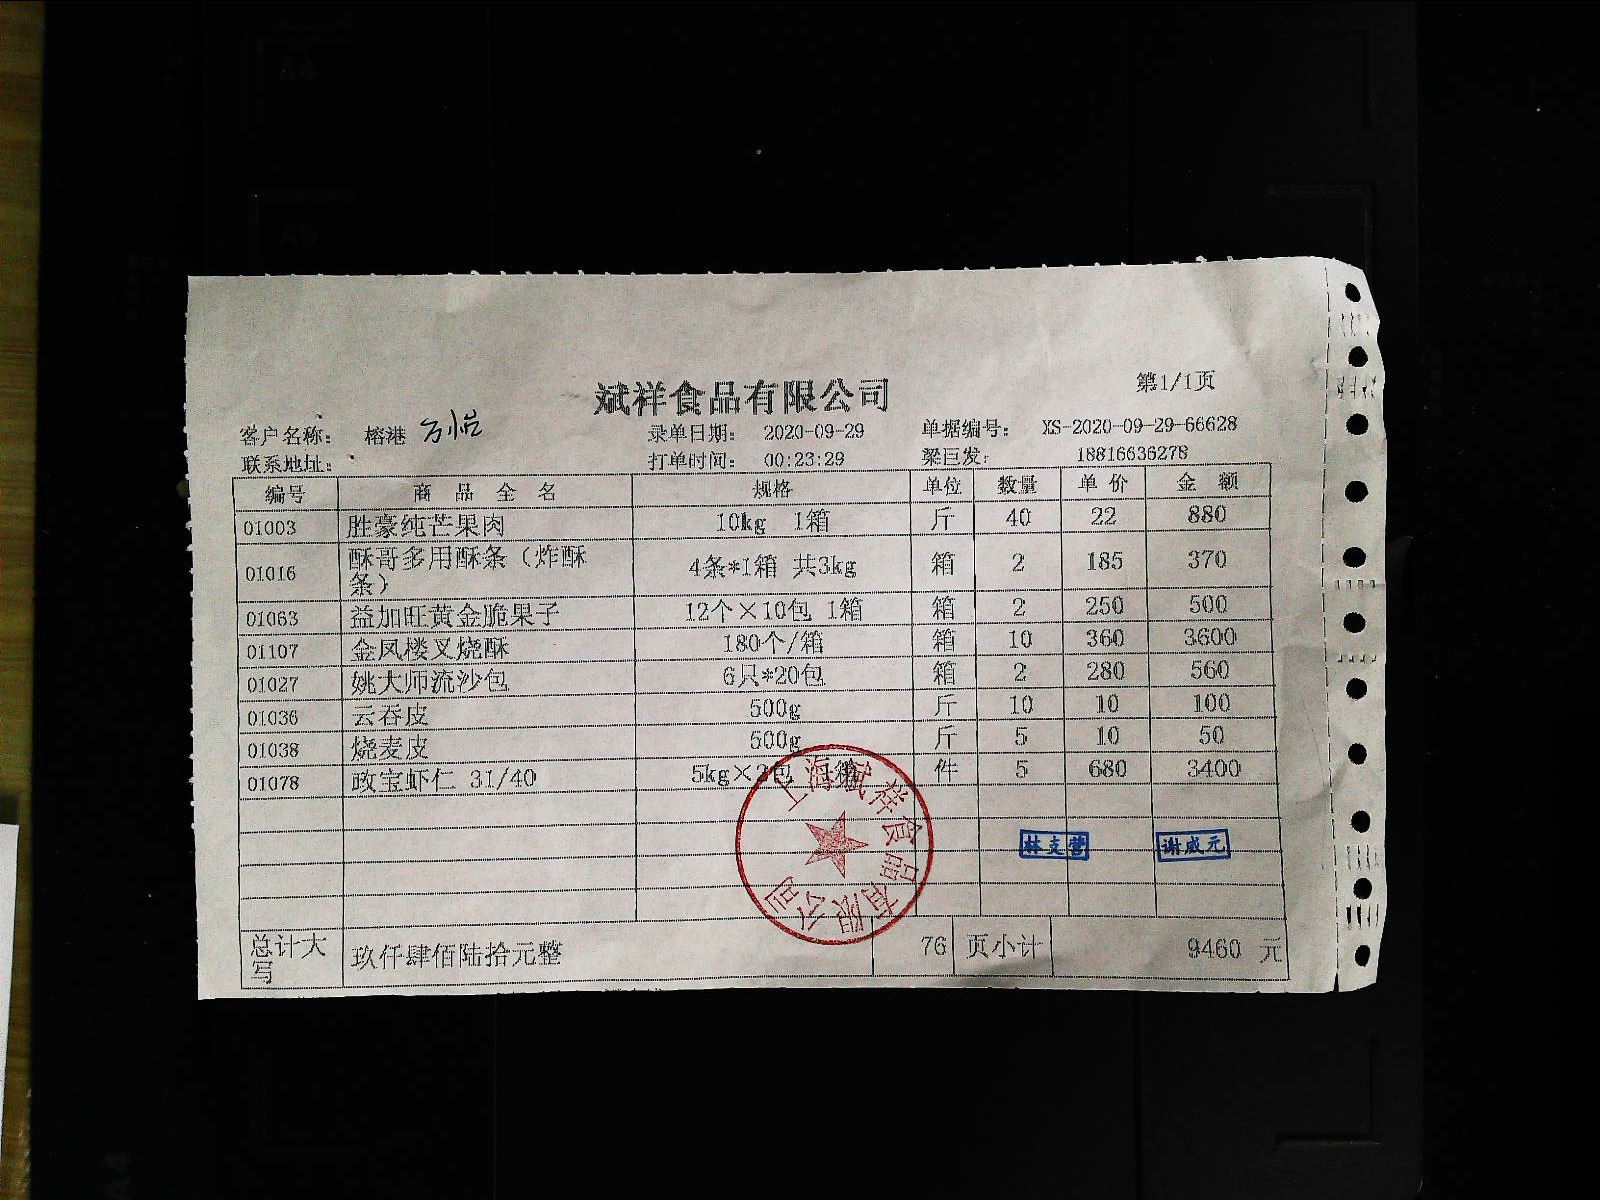 斌祥食品有限公司
第1/1页
客户名称： 榕港 万怡 录单日期： 2020-09-29 单据编号： XS-2020-09-29-66628
联系地址： 打单时间： 00:23:29 梁巨发： 18816636278
编号 商 品 全 名 规格 单位 数量 单 价 金 额
01003 胜豪纯芒果肉 10kg 1箱 斤 40 22 880
01016 酥哥多用酥条（炸酥条） 4条*1箱 共3kg 箱 2 185 370
01063 益加旺黄金脆果子 12个×10包 1箱 箱 2 250 500
01107 金凤楼叉烧酥 180个/箱 箱 10 360 3600
01027 姚大师流沙包 6只*20包 箱 2 280 560
01036 云吞皮 500g 斤 10 10 100
01038 烧麦皮 500g 斤 5 10 50
01078 政宝虾仁 31/40 5kg×2包 1箱 件 5 680 3400
上海斌祥食品有限公司
林支营 谢威元
总计大写 玖仟肆佰陆拾元整 76 页小计 9460 元